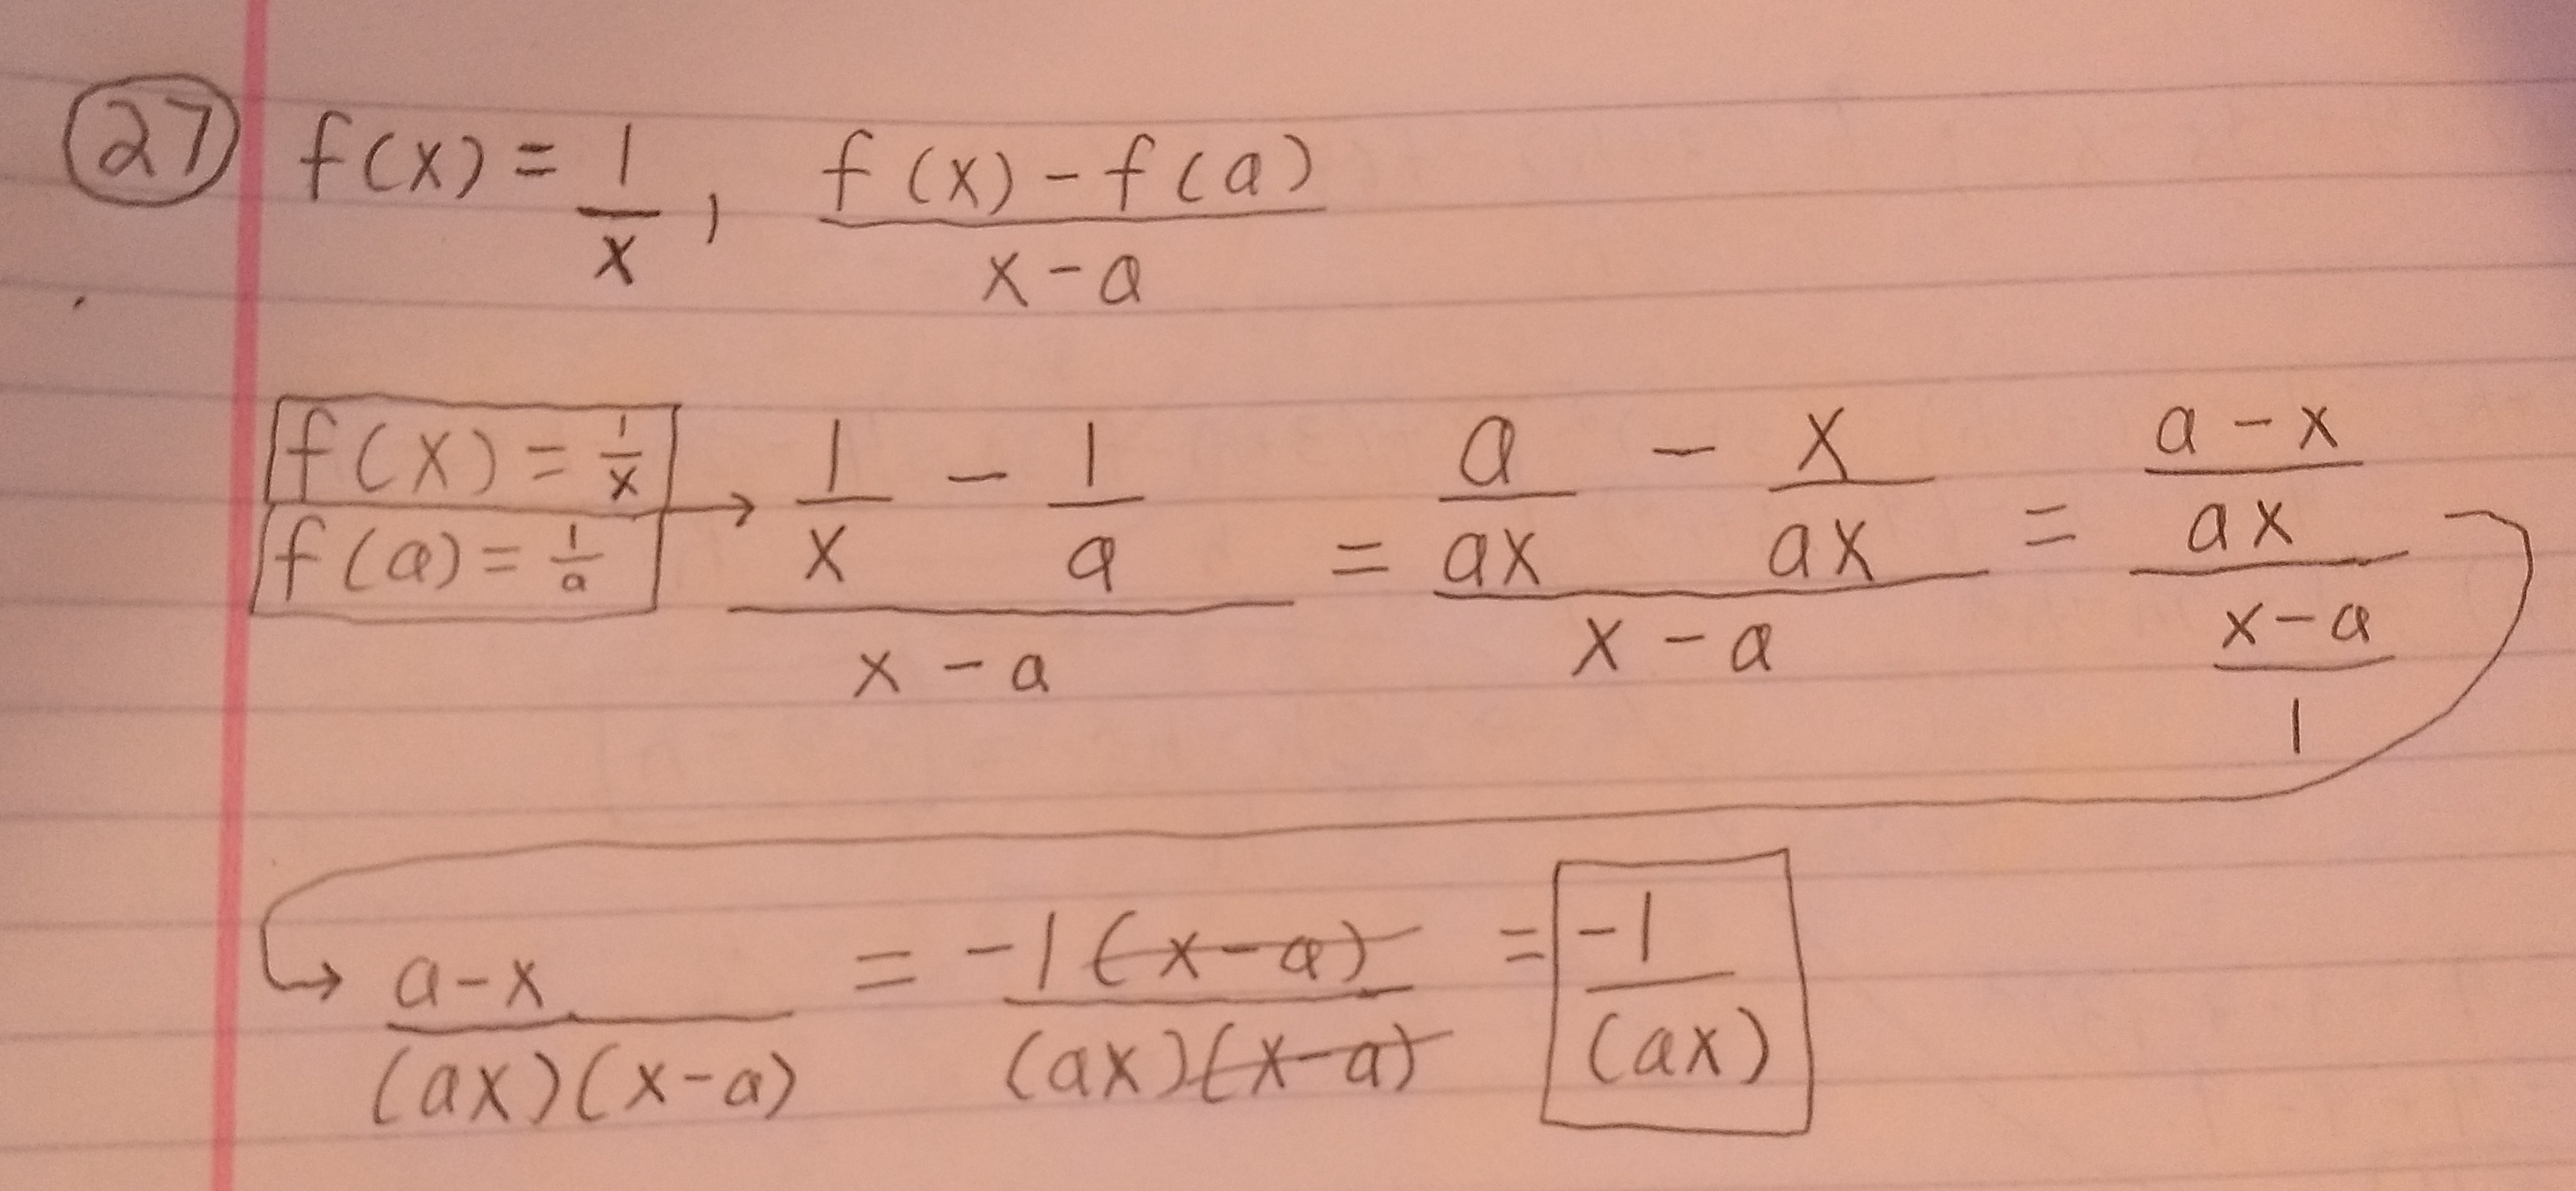 27 f(x) = 1/x , (f(x) - f(a))/(x - a)
f(x) = 1/x
f(a) = 1/a
→ (1/x - 1/a)/(x - a) = (a/ax - x/ax)/(x - a) = ((a - x)/ax)/((x - a)/1)
→ (a - x)/((ax)(x - a)) = (-1(x - a))/((ax)(x - a)) = -1/(ax)